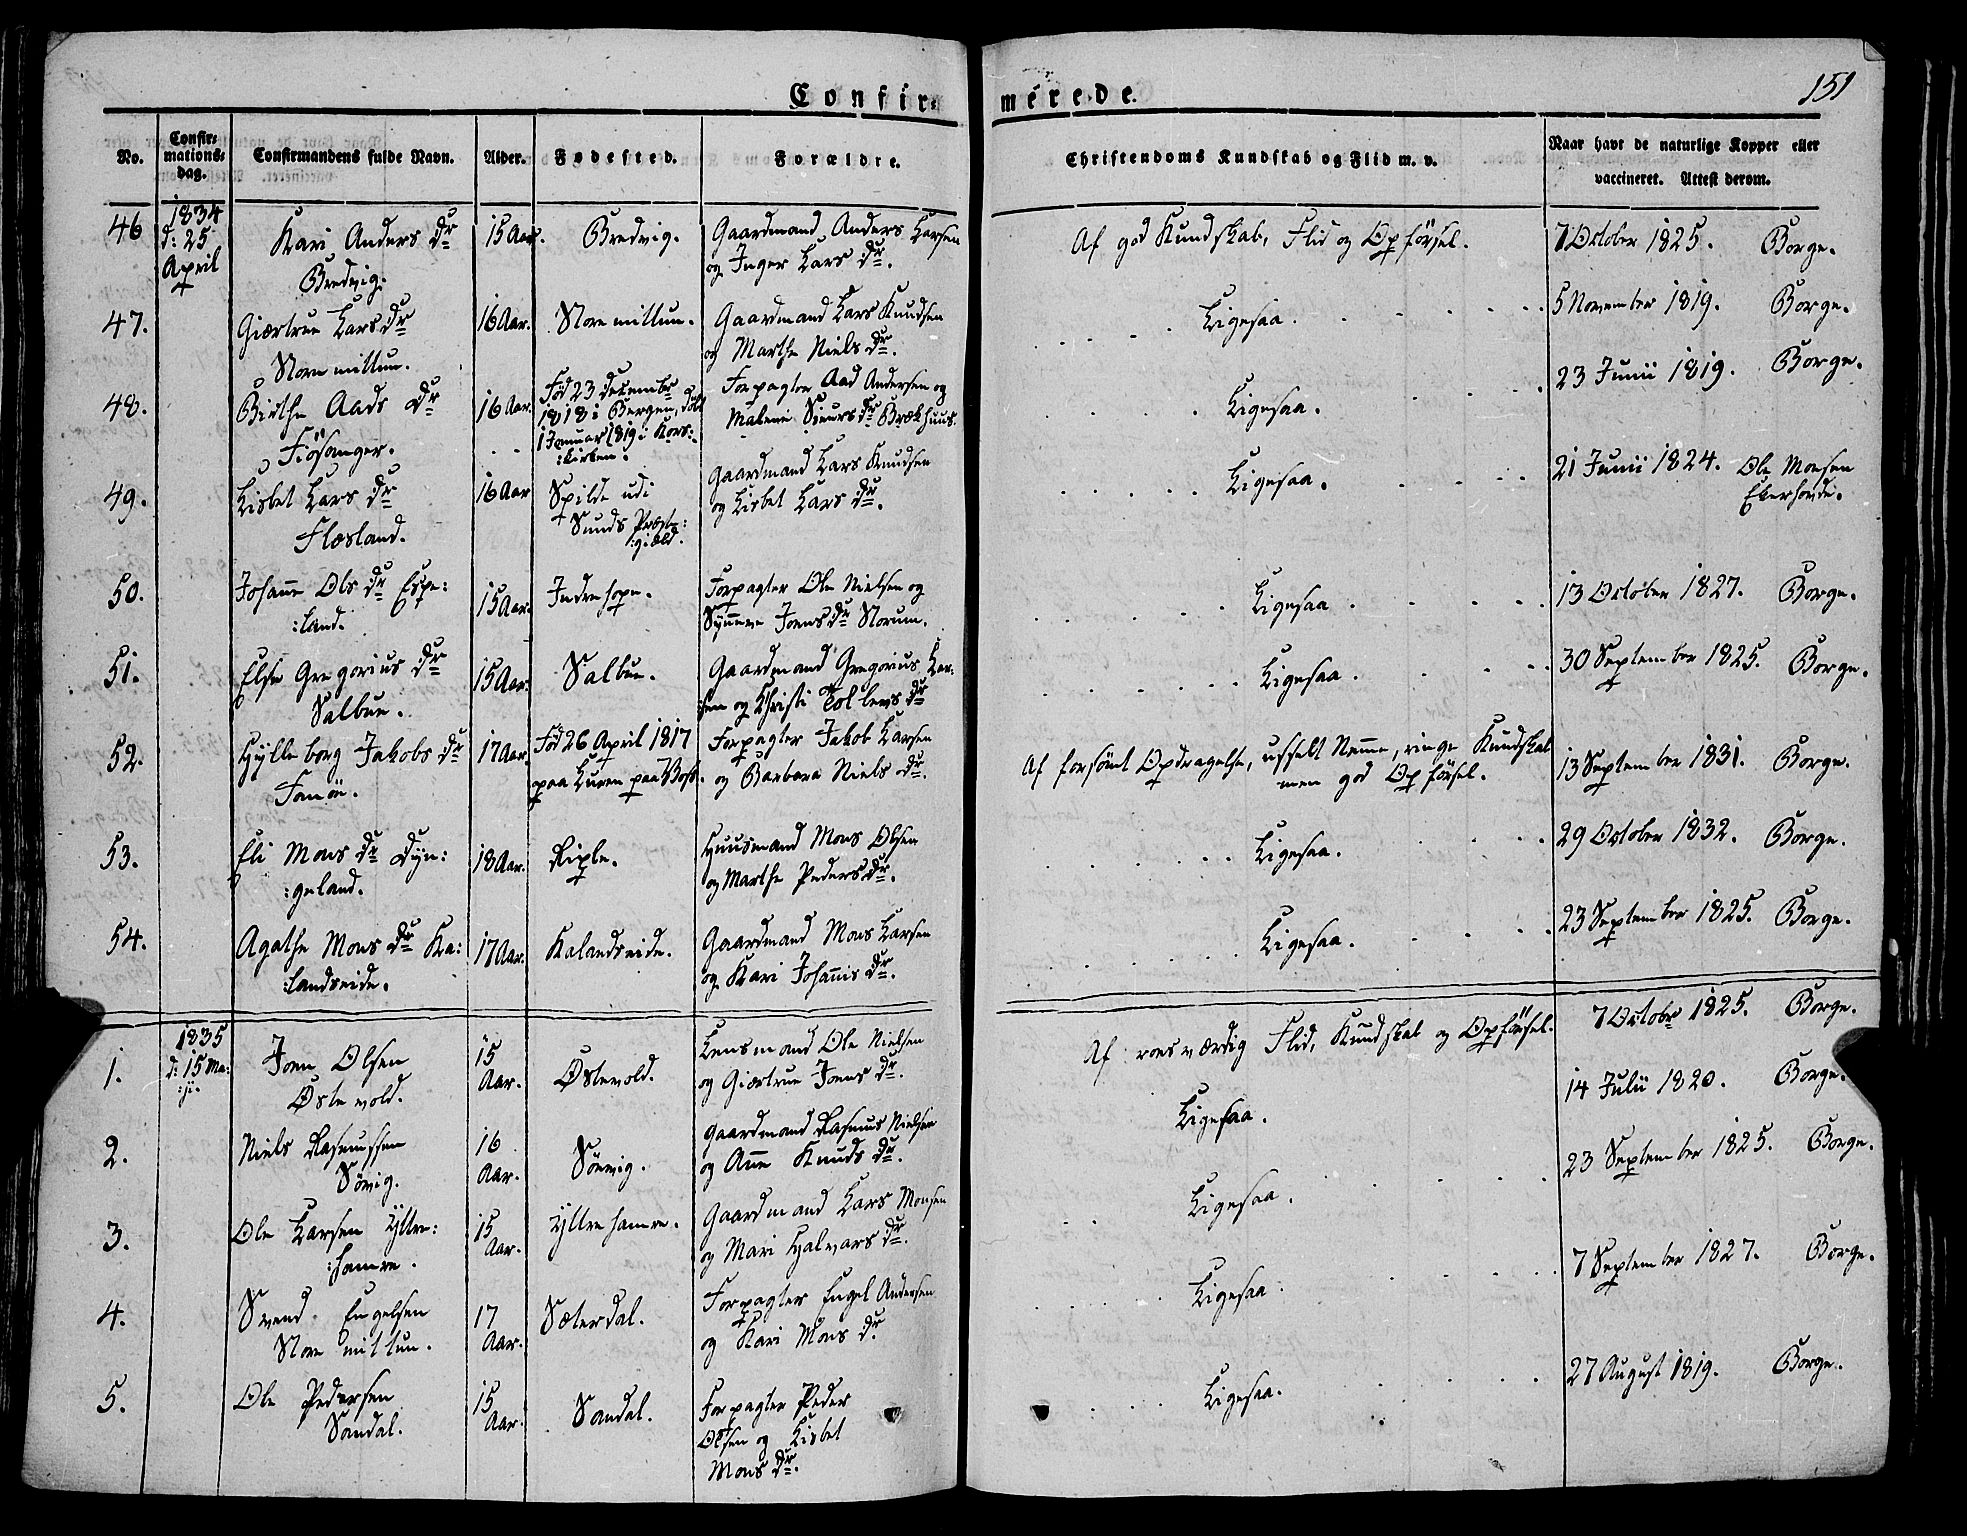 Confir= mérede.
151
No.
Confir=
mations=
dag.
Confirmandens fulde Navn.
Alder.
Fødested.
Forældre.
Christendoms Kundskab og Flid m. v.
Naar havt de naturlige Kopper eller
vaccineret. Attest derom.
46 1834 Kari Anders Dr 15 Aar. Bredvig. Gaardmand Anders Larsen Af god Kundskab, Flid og Opførsel. 7 October 1825. Borge.
d: 25 Bredvig. og Inger Lars Dr.
April
47. Giærtrue Lars Dr 16 Aar. Storemittun. Gaardmand Lars Knudsen Ligesaa. 5 November 1819. Borge.
Storemittun. og Marthe Niels Dr.
48. Birthe Aads Dr 16 Aar. Fød 23 Decembr Forpagter Aad Andersen og Ligesaa. 23 Junii 1819. Borge.
Fiøsanger. 1818 i Bergen, Døbt Malene Siurs Dr Brækhuus.
1 Januar 1819 i Kors:
:kirken.
49. Lisbet Lars Dr 16 Aar Spilde udi Gaardmand Lars Knudsen Ligesaa. 21 Junii 1824. Ole Monsen
Flæsland. Sunds Præste: og Lisbet Lars Dr. Ekerhovde.
:gield.
50. Johanne Ols Dr Espe: 15 Aar. Indrehope. Forpagter Ole Nielsen og Ligesaa. 13 October 1827. Borge.
:land. Synneve Joens Dr Storum.
51. Else Gregorius Dr 15 Aar. Salbue. Gaardmand Gregorius Lar: Ligesaa. 30 September 1825. Borge.
Salbue. :sen og Christi Tollevs Dr
52. Hylleborg Jakobs Dr 17 Aar. Fød 26 April 1817 Forpagter Jakob Larsen Af forsömt Opdragelse, usselt Nemme, ringe Kundskab 13 September 1831. Borge.
Fanöe. paa Luren paa Voss. og Barbara Niels Dr. men god Opførsel.
53. Eli Mons Dr Dyn: 18 Aar. Riple. Huusmand Mons Olsen Ligesaa. 29 October 1832. Borge.
:geland. og Marthe Peders Dr.
54. Agathe Mons Dr Ka: 17 Aar. Kalandseide. Gaardmand Mons Larsen Ligesaa. 23 September 1825. Borge.
:landseide. og Kari Johannis Dr.
1. 1835 Joen Olsen 15 Østevold. Lensmand Ole Nielsen Af roesværdig Flid, Kundskab og Opførsel. 7 Octobr 1825. Borge.
d: 15 Ma: Østevold. Aar. og Giærtrue Joens Dr.
:ji.
2. Niels Rasmussen 16 Sövig. Gaardmand Rasmus Nielsen Ligesaa. 14 Julii 1820. Borge.
Sövig. Aar. og Anne Knuds Dr.
3. Ole Larsen Yttre: 15 Yttrehamre. Gaardmand Lars Monsen Ligesaa. 23 September 1825. Borge.
:hamre. Aar. og Mari Halvars Dr.
4. Svend Engelsen 17 Sæterdal. Forpagter Engel Andersen Ligesaa. 7 September 1827. Borge.
Storemittun. Aar. og Kari Mons Dr.
5. Ole Pedersen 15 Sandal. Forpagter Peder Ligesaa. 27 August 1819. Borge.
Sandal. Aar. Olsen og Lisbet
Mons Dr.